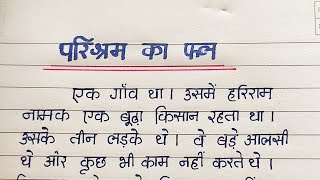 परिश्रम का फल
एक गाँव था । उसमें हरिराम
नामक एक बूढ़ा किसान रहता था ।
उसके तीन लड़के थे । वे बड़े आलसी
थे और कुछ भी काम नहीं करते थे ।